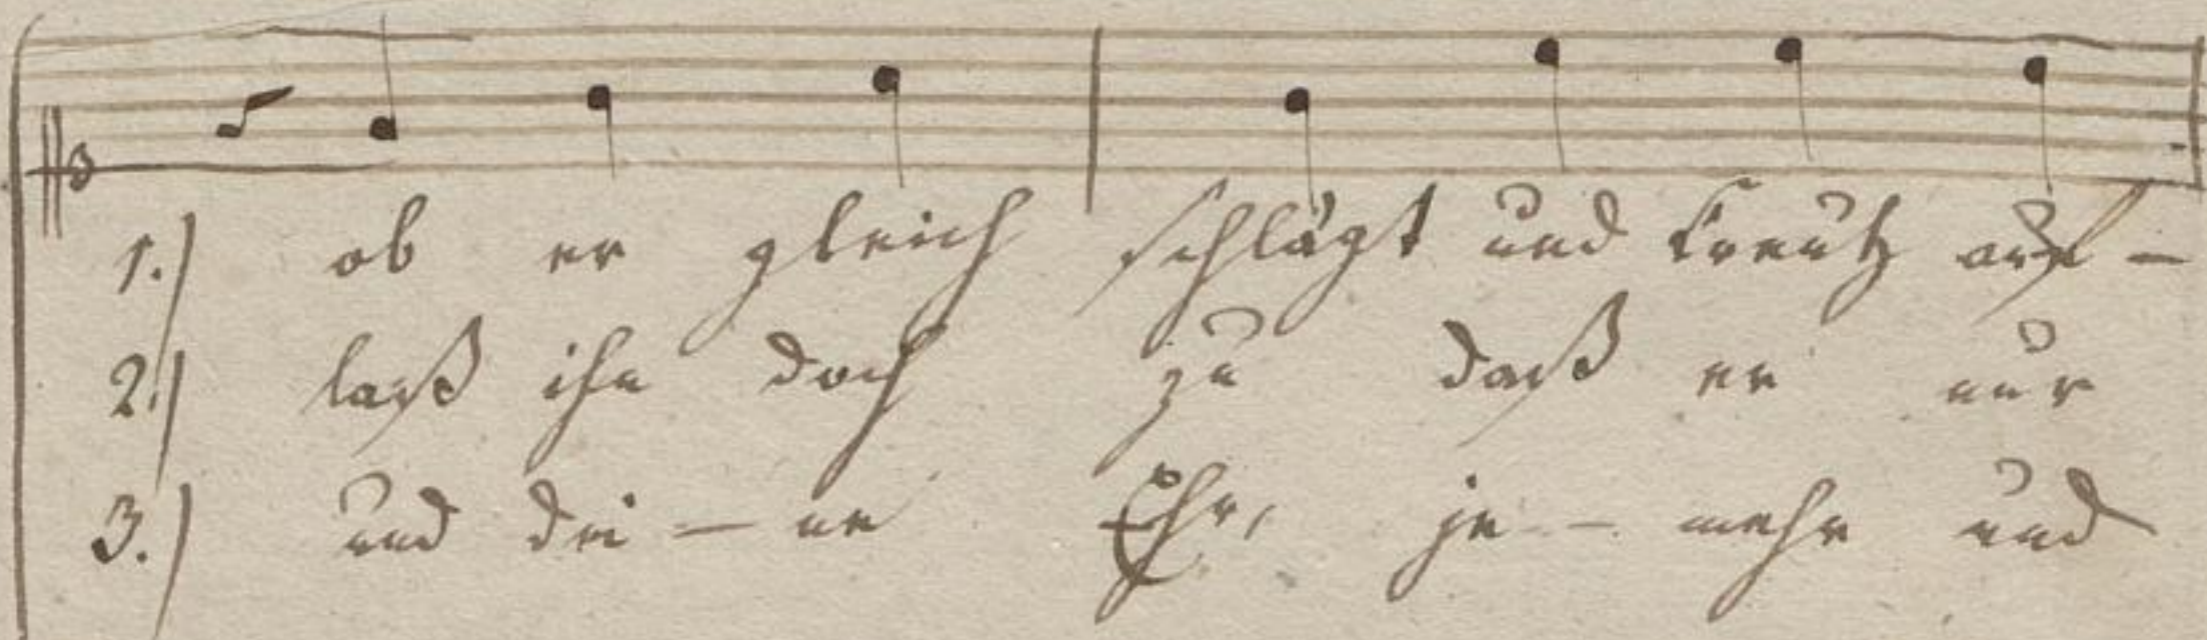 1.) ob er gleich schlägt und Kreutz auf-
2.) laß ihn doch zu daß er nur
3.) und dei-ne Ehr, je-mehr und